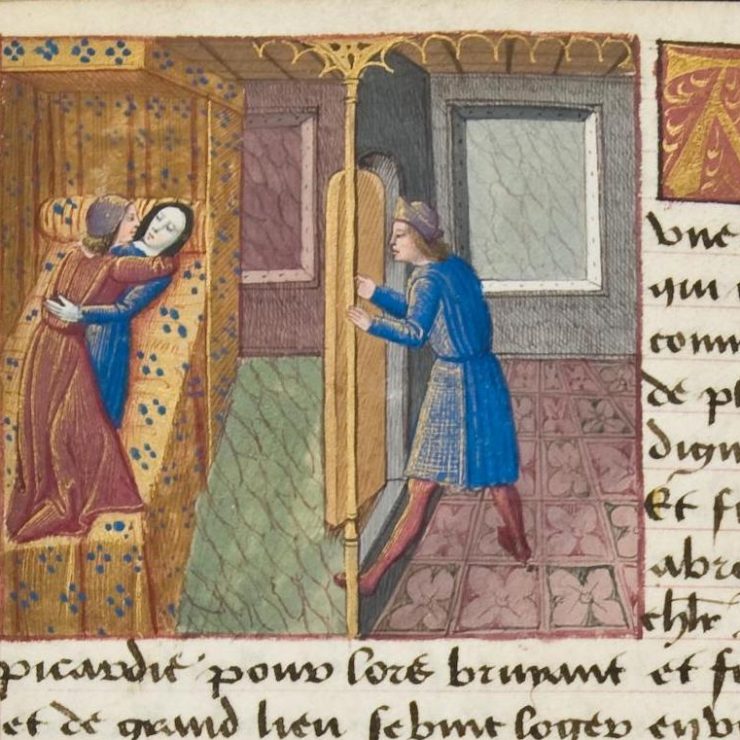 vne
qui
comm
de pl
dign
Et fe
abre
chlr
picardie pour lors bruyant et fe
et de grand lieu se vint loger en vn